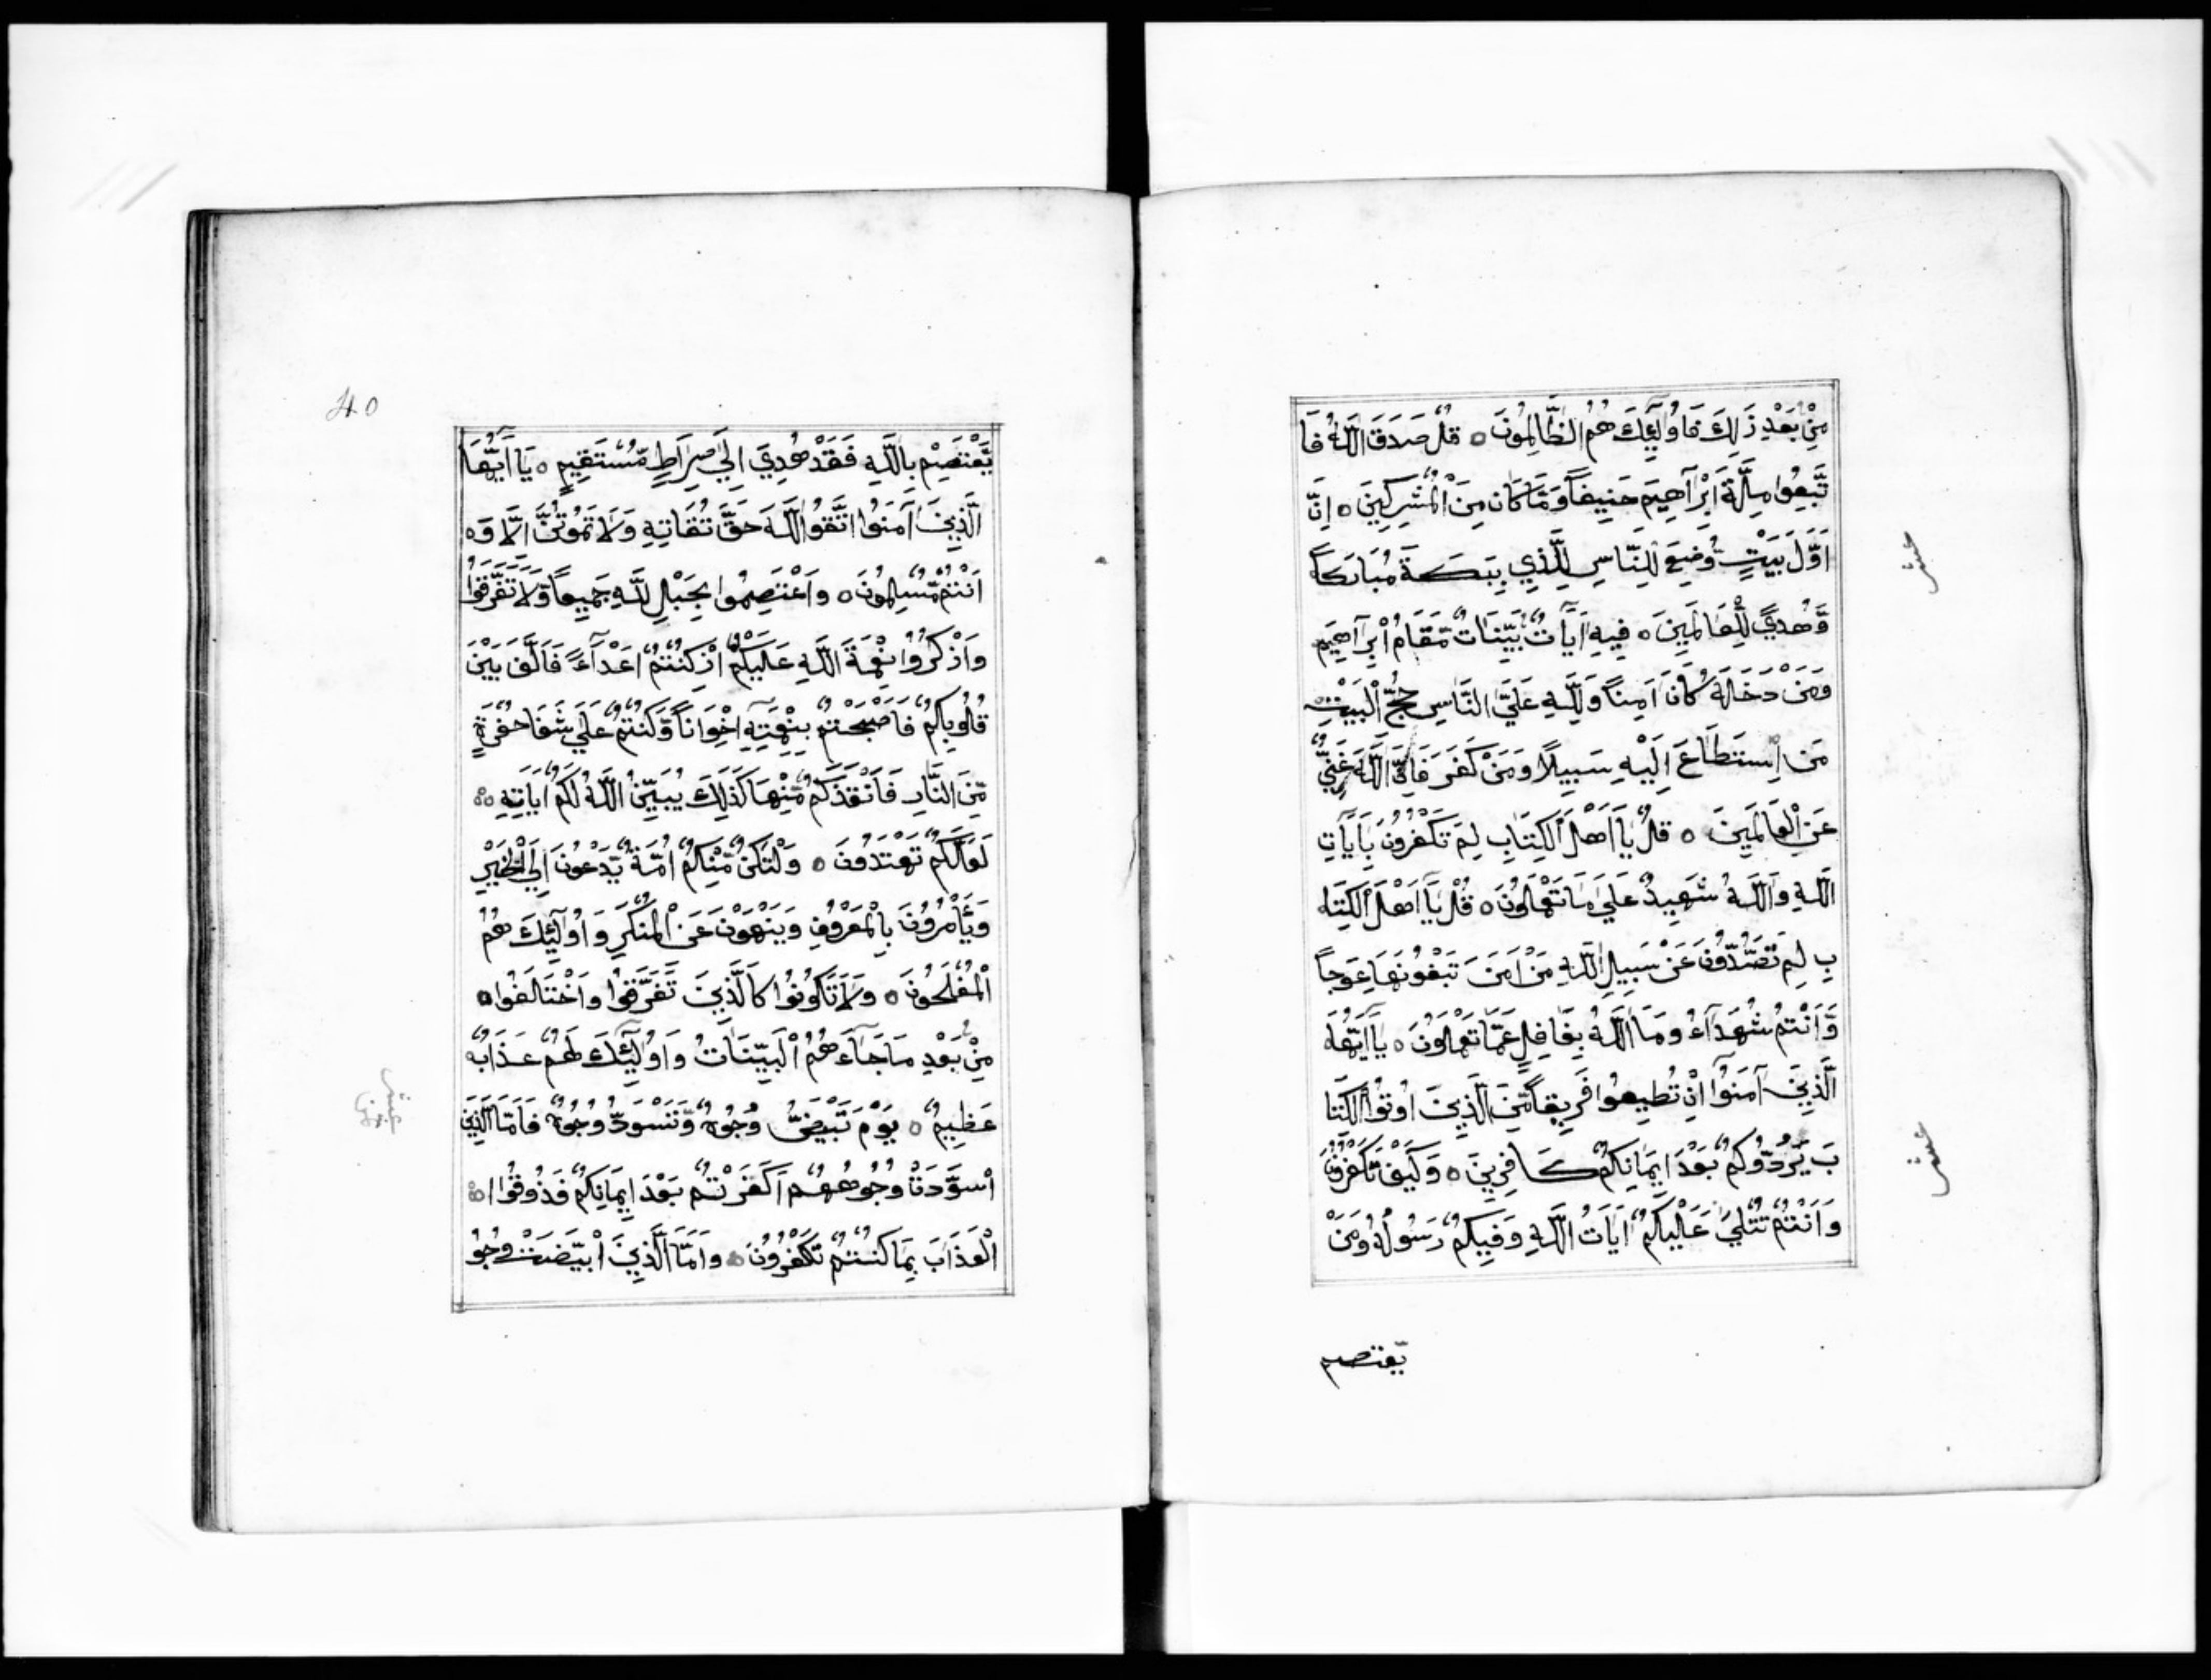 مِنْ بَعْدِ ذَلِكَ فَاُولَئِكَ هُمُ الظَّالِمُونَ ه قُلْ صَدَقَ اللّٰهُ فَا
تَّبِعُوا مِلَّةَ اِبْرَاهِيمَ حَنِيفاً وَمَا كَانَ مِنَ الْمُشْرِكِينَ ه اِنَّ
اَوَّلَ بَيْتٍ وُضِعَ لِلنَّاسِ لِلَّذِي بِبَكَةَ مُبَارَكاً
وَّهُدًي لِّلْعَالَمِينَ ه فِيهِ اَيَاتٌ بَيِّنَاتٌ مَّقَامُ اِبْرَاهِيمَ
وَمَنْ دَخَلَهُ كَانَ اَمِناً وَلِلَّهِ عَلَيَ النَّاسِ حِجُّ الْبَيْتِ
مَنِ اسْتَطَاعَ اِلَيْهِ سَبِيلًا وَمَنْ كَفَرَ فَاِنَّ اللّٰهَ غَنِيٌّ
عَنِ الْعَالَمِينَ ه قُلْ يَا اَهْلَ الْكِتَابِ لِمَ تَكْفُرُونَ بِاَيَاتِ
اللّٰهِ وَاللّٰهُ شَهِيدٌ عَلَيَ مَا تَعْمَلُونَ ه قُلْ يَا اَهْلَ الْكِتَا
بِ لِمَ تَصُدُّونَ عَنْ سَبِيلِ اللّٰهِ مَنْ اَمَنَ تَبْغُونَهَا عِوَجاً
وَّاَنْتُمْ شُهَدَآءُ وَمَا اللّٰهُ بِغَافِلٍ عَمَّا تَعْمَلُونَ ه يَا اَيُّهَا
الَّذِينَ آمَنُوا اِنْ تُطِيعُوا فَرِيقاً مِّنَ الَّذِينَ اُوتُوا الْكِتَا
بَ يَرُدُّوكُمْ بَعْدَ اِيمَانِكُمْ كَافِرِينَ ه وَكَيْفَ تَكْفُرُونَ
وَاَنْتُمْ تُتْلَيَ عَلَيْكُمْ اَيَاتُ اللّٰهِ وَفِيكُمْ رَسُولُهُ وَمَنْ
يّعتصم
عشر
عشر
40
يَّعْتَصِمْ بِاللَّهِ فَقَدْ هُدِيَ اِلَيَ صِرَاطٍ مُّسْتَقِيمٍ ه يَا اَيُّهَا
الَّذِينَ آمَنُوا اتَّقُوا اللّٰهَ حَقَّ تُقَاتِهِ وَلَا تَمُوتُنَّ اِلَّا وَ ه
اَنْتُمْ مُّسْلِمُونَ ه وَاعْتَصِمُوا بِحَبْلِ للَّهِ جَمِيعاً وَّلَا تَفَرَّقُوا
وَاذْكُرُوا نِعْمَةَ اللّٰهِ عَلَيْكُمْ اِذْ كُنْتُمْ اَعْدَآءً فَاَلَّفَ بَيْنَ
قُلُوبِكُمْ فَاَصْبَحْتُمْ بِنِعْمَتِهِ اِخْوَاناً وَّكُنْتُمْ عَلَيَ شَفَا حُفْرَةٍ
مِّنَ النَّارِ فَاَنْقَذَكُمْ مِّنْهَا كَذَلِكَ يُبَيِّنُ اللّٰهُ لَكُمْ اَيَاتِهِ
لَعَلَّكُمْ تَهْتَدُونَ ه وَلْتَكُنْ مِّنْكُمْ اُمَّةٌ يَّدْعُونَ اِلَي الْخَيْرِ
وَيَأْمُرُونَ بِالْمَعْرُوفِ وَيَنْهَوْنَ عَنِ الْمُنْكَرِ وَاُولَئِكَ هُمُ
الْمُفْلِحُونَ ه وَلَا تَكُونُوا كَالَّذِينَ تَفَرَّقُوا وَاخْتَلَفُوا ه
مِنْ بَعْدِ مَا جَآءَهُمُ الْبَيِّنَاتُ وَاُولَئِكَ لَهُمْ عَذَابٌ
عَظِيمٌ ه يَوْمَ تَبْيَضُّ وُجُوهٌ وَّتَسْوَدُّ وُجُوهٌ فَاَمَّا الَّذِينَ
اسْوَدَّتْ وُجُوهُهُمْ اَكَفَرْتُمْ بَعْدَ اِيمَانِكُمْ فَذُوقُوا
الْعَذَابَ بِمَا كُنْتُمْ تَكْفُرُونَ ه وَاَمَّا الَّذِينَ ابْيَضَّتْ وُجُو